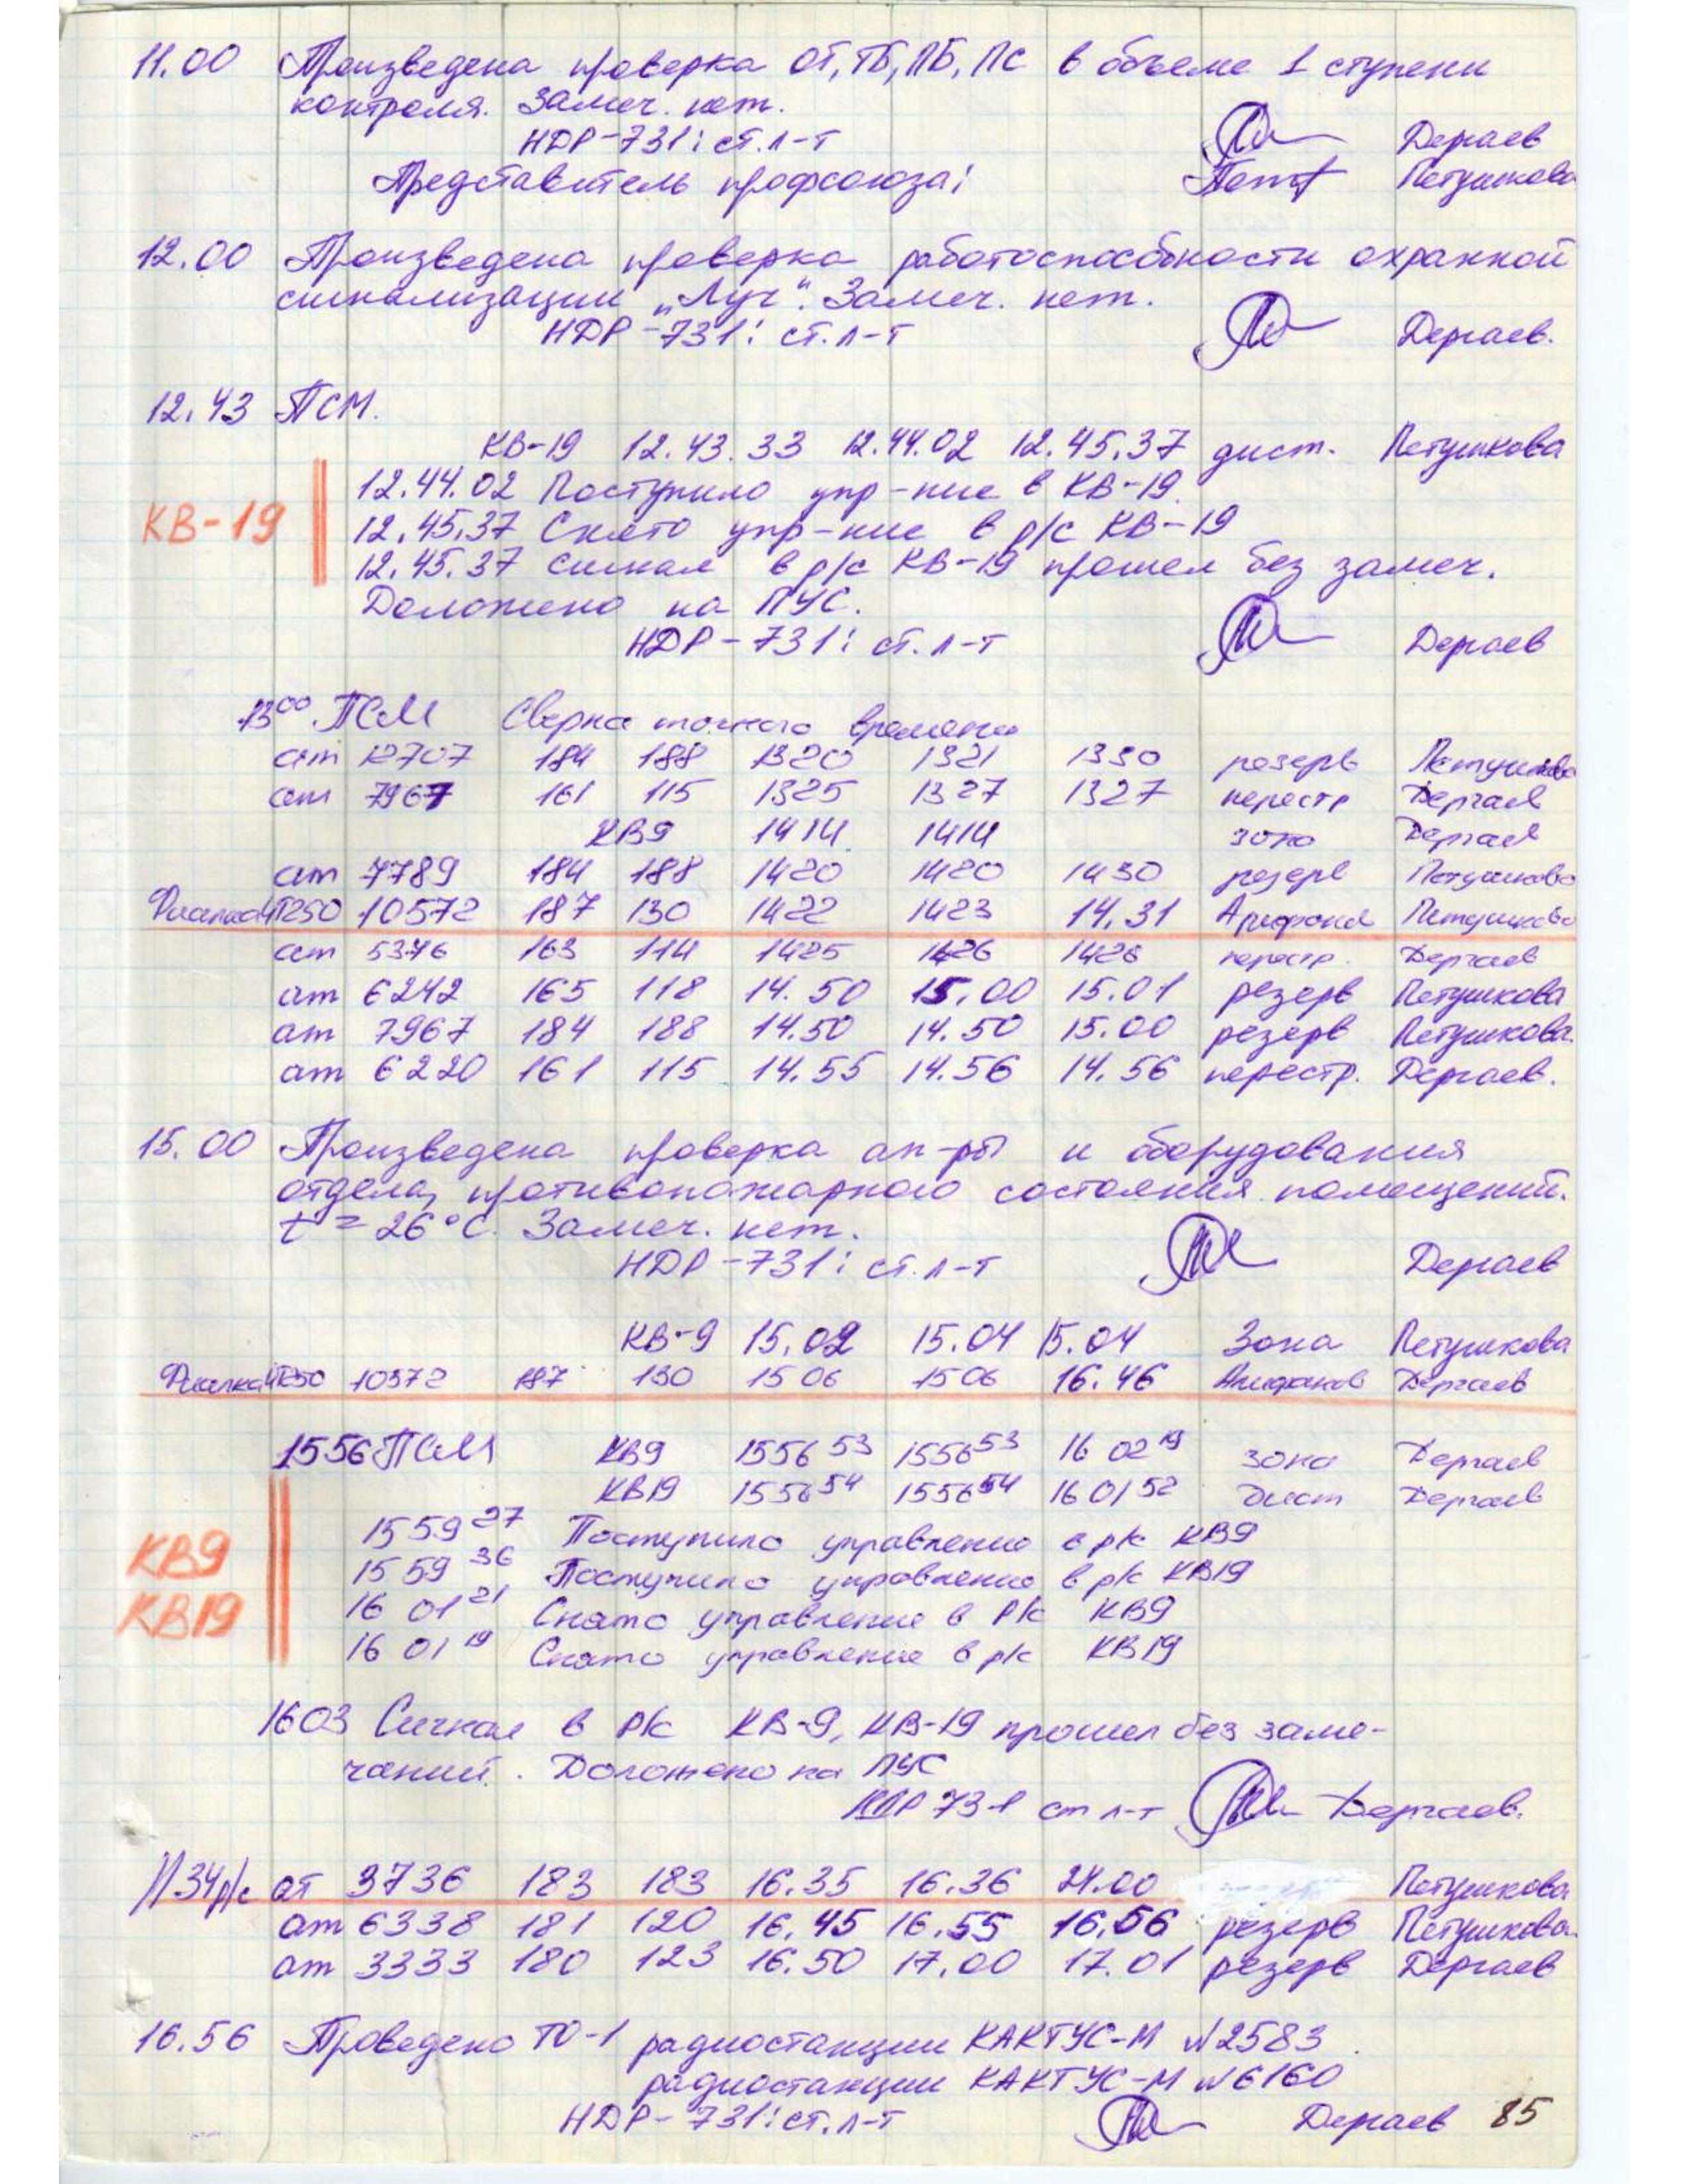 11.00 Произведена проверка ОТ, ТБ, ПБ, ПС в объеме 1 ступени
контроля. Замеч. нет.
НДР-731: ст. л-т Дергаев
Представитель профсоюза: Петушкова
12.00 Произведена проверка работоспособности охранной
сигнализации „Луч“. Замеч. нет.
НДР-731: ст. л-т Дергаев.
12.43 ПСМ.
КВ-19 12.43.33 12.44.02 12.45.37 дист. Петушкова
12.44.02 Поступило упр-ние в КВ-19.
КВ-19
12.45.37 Снято упр-ние в р/с КВ-19
12.45.37 Сигнал в р/с КВ-19 прошел без замеч.
Доложено на ПУС.
НДР-731: ст. л-т Дергаев
13 00 ПСМ Сверка точного времени
ат 12707 184 188 1320 1321 1330 резерв Петушкова
ат 7967 161 115 1325 1327 1327 перестр Дергаев
КВ9 1414 1414 зона Дергаев
ат 7789 184 188 1420 1420 1430 резерв Петушкова
10572 187 130 1422 1423 14.31 Петушкова
ат 5376 163 114 1425 1426 1428 перестр. Дергаев
ат 6242 165 118 14.50 15.00 15.01 резерв Петушкова
ат 7967 184 188 14.50 14.50 15.00 резерв Петушкова.
ат 6220 161 115 14.55 14.56 14.56 перестр. Дергаев.
15.00 Произведена проверка ап-ры и оборудования
отдела, противопожарного состояния помещений.
t° = 26°С. Замеч. нет.
НДР-731: ст. л-т Дергаев
КВ-9 15.02 15.04 15.04 Зона Петушкова
10572 187 130 1506 1506 16.46 Дергаев
1556 ПСМ КВ9 1556 53 1556 53 16 02 19 зона Дергаев
КВ19 1556 54 1556 54 16 01 52 Дист Дергаев
15 59 27 Поступило управление в р/с КВ9
КВ9
15 59 36 Поступило управление в р/с КВ19
16 01 21 Снято управление в р/с КВ9
КВ19
16 01 19 Снято управление в р/с КВ19
1603 Сигнал в р/с КВ-9, КВ-19 прошел без заме-
чаний. Доложено на ПУС
НДР 731 ст л-т Дергаев.
р/с ат 3736 183 183 16.35 16.36 24.00 Петушкова
ат 6338 181 120 16.45 16.55 16.56 резерв Петушкова.
ат 3333 180 123 16.50 17.00 17.01 резерв Дергаев
16.56 Проведено ТО-1 радиостанции КАКТУС-М №2583.
радиостанции КАКТУС-М №6160
НДР-731: ст. л-т Дергаев 85